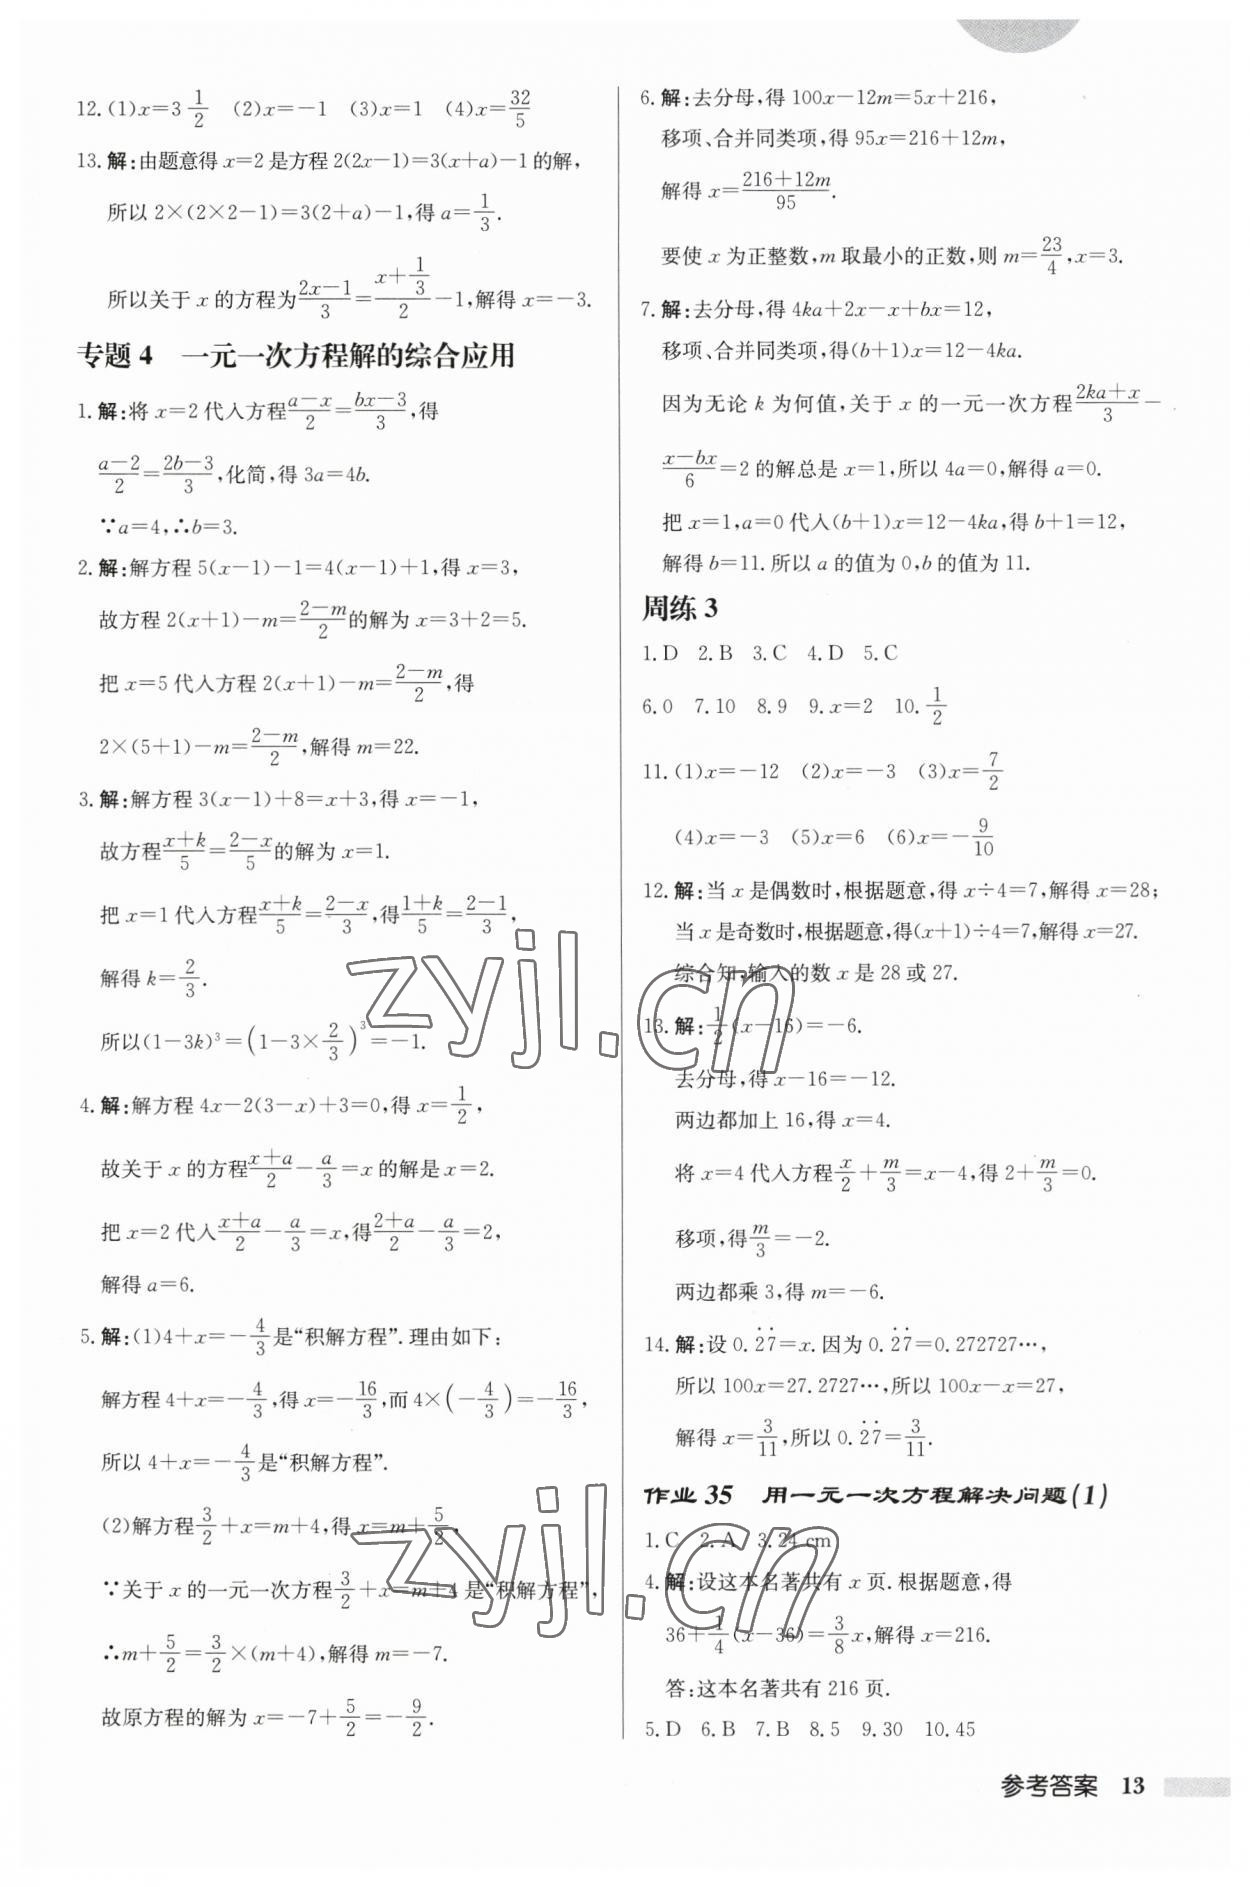 12.(1)x=3 1/2 (2)x=-1 (3)x=1 (4)x=32/5
13.解:由题意得 x=2 是方程 2(2x-1)=3(x+a)-1 的解,
所以 2×(2×2-1)=3(2+a)-1,得 a=1/3.
所以关于 x 的方程为(2x-1)/3=(x+1/3)/2-1,解得 x=-3.
专题 4 一元一次方程解的综合应用
1.解:将 x=2 代入方程(a-x)/2=(bx-3)/3,得
(a-2)/2=(2b-3)/3,化简,得 3a=4b.
∵a=4,∴b=3.
2.解:解方程 5(x-1)-1=4(x-1)+1,得 x=3,
故方程 2(x+1)-m=(2-m)/2的解为 x=3+2=5.
把 x=5 代入方程 2(x+1)-m=(2-m)/2,得
2×(5+1)-m=(2-m)/2,解得 m=22.
3.解:解方程 3(x-1)+8=x+3,得 x=-1,
故方程(x+k)/5=(2-x)/5的解为 x=1.
把 x=1 代入方程(x+k)/5=(2-x)/3,得(1+k)/5=(2-1)/3,
解得 k=2/3.
所以(1-3k)³=(1-3×2/3)³=-1.
4.解:解方程 4x-2(3-x)+3=0,得 x=1/2,
故关于 x 的方程(x+a)/2-a/3=x 的解是 x=2.
把 x=2 代入(x+a)/2-a/3=x,得(2+a)/2-a/3=2,
解得 a=6.
5.解:(1)4+x=-4/3是“积解方程”.理由如下:
解方程 4+x=-4/3,得 x=-16/3,而 4×(-4/3)=-16/3,
所以 4+x=-4/3是“积解方程”.
(2)解方程3/2+x=m+4,得 x=m+5/2,
∵关于 x 的一元一次方程3/2+x=m+4 是“积解方程”,
∴m+5/2=3/2×(m+4),解得 m=-7.
故原方程的解为 x=-7+5/2=-9/2.
6.解:去分母,得 100x-12m=5x+216,
移项、合并同类项,得 95x=216+12m,
解得 x=(216+12m)/95.
要使 x 为正整数,m 取最小的正数,则 m=23/4,x=3.
7.解:去分母,得 4ka+2x-x+bx=12,
移项、合并同类项,得(b+1)x=12-4ka.
因为无论 k 为何值,关于 x 的一元一次方程(2ka+x)/3-
(x-bx)/6=2 的解总是 x=1,所以 4a=0,解得 a=0.
把 x=1,a=0 代入(b+1)x=12-4ka,得 b+1=12,
解得 b=11.所以 a 的值为 0,b 的值为 11.
周练 3
1.D 2.B 3.C 4.D 5.C
6.0 7.10 8.9 9.x=2 10.1/2
11.(1)x=-12 (2)x=-3 (3)x=7/2
(4)x=-3 (5)x=6 (6)x=-9/10
12.解:当 x 是偶数时,根据题意,得 x÷4=7,解得 x=28;
当 x 是奇数时,根据题意,得(x+1)÷4=7,解得 x=27.
综合知,输入的数 x 是 28 或 27.
13.解:1/2(x-16)=-6.
去分母,得 x-16=-12.
两边都加上 16,得 x=4.
将 x=4 代入方程x/2+m/3=x-4,得 2+m/3=0.
移项,得m/3=-2.
两边都乘 3,得 m=-6.
14.解:设 0.2̇7̇=x.因为 0.2̇7̇=0.272727…,
所以 100x=27.2727…,所以 100x-x=27,
解得 x=3/11,所以 0.2̇7̇=3/11.
作业 35 用一元一次方程解决问题(1)
1.C 2.A 3.24 cm
4.解:设这本名著共有 x 页.根据题意,得
36+1/4(x-36)=3/8x,解得 x=216.
答:这本名著共有 216 页.
5.D 6.B 7.B 8.5 9.30 10.45
参考答案 13
zyjl.cn
zyjl.cn